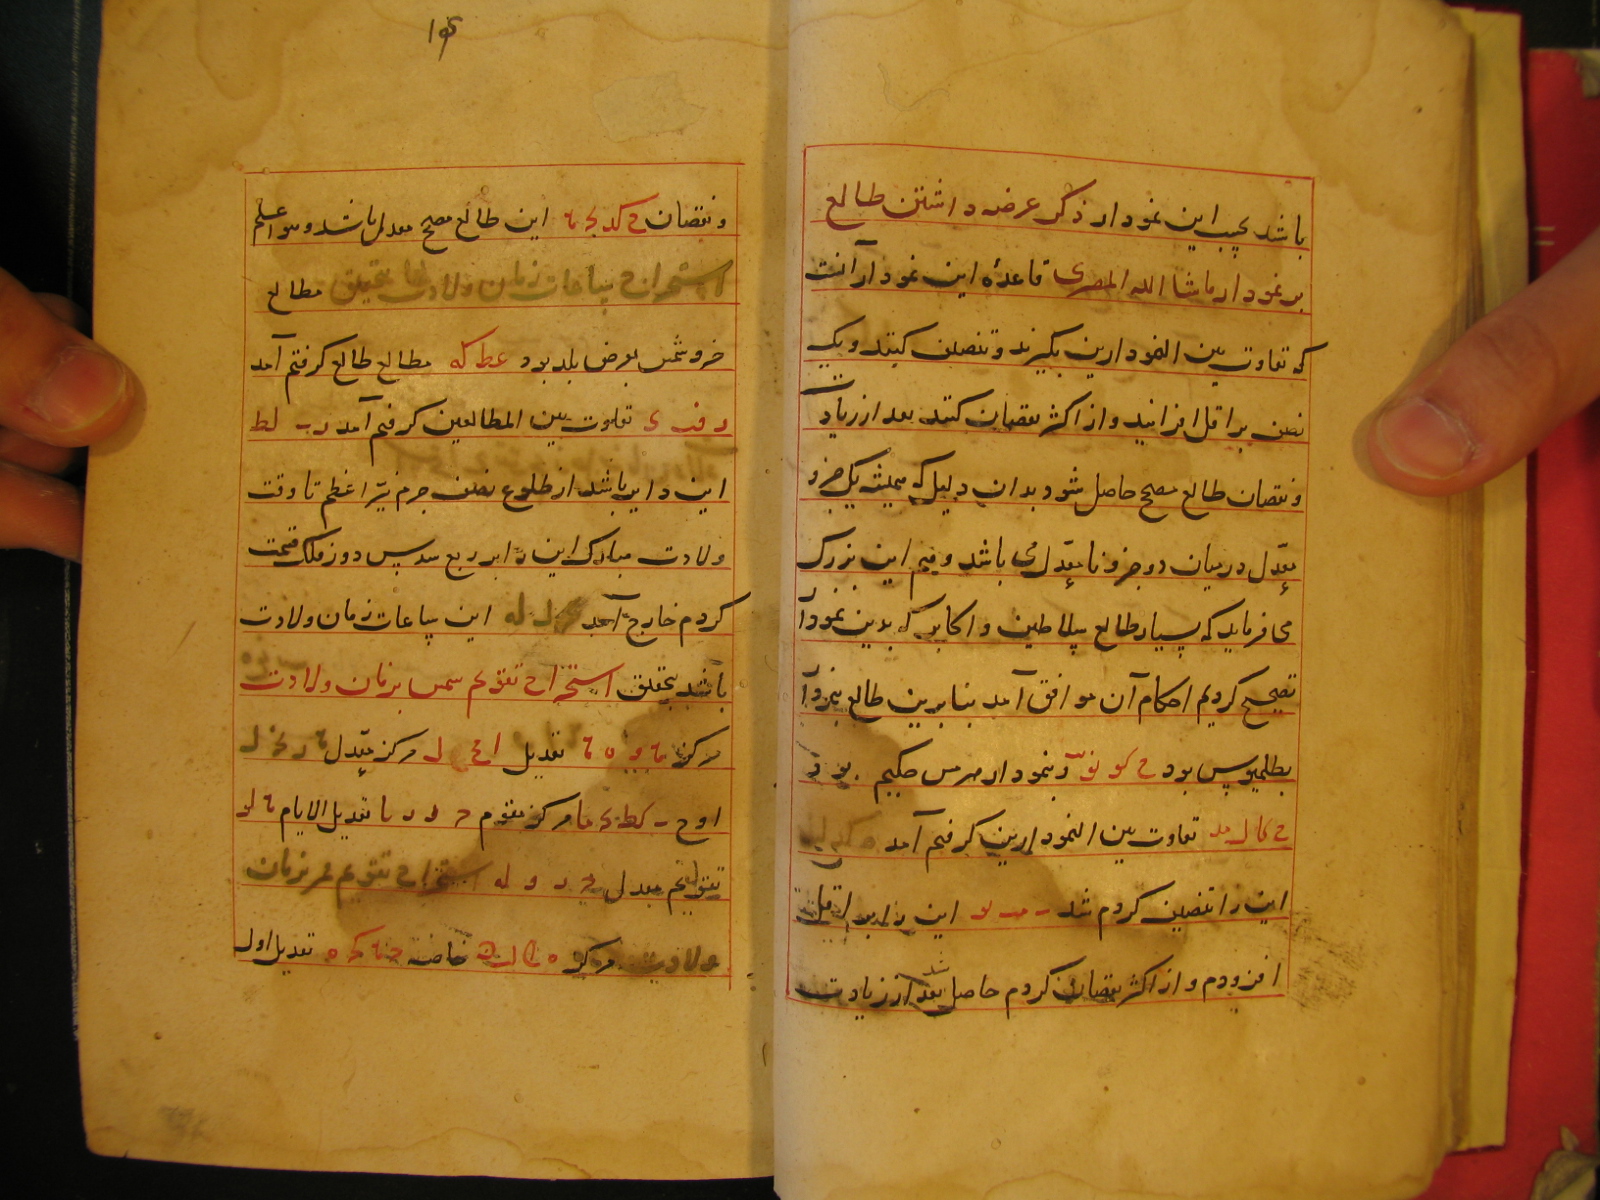 باشد بحسب این نمودار ذکر عرضه داشتن طالع
بر نمودار ماشا الله المصری قاعدهٔ این نمودار آنست
که تفاوت بین النمودارین بگیرند و تنصیف کنند و یک
نصف بر اقل افزایند و از اکثر نقصان کنند بعد از زیادت
و نقصان طالع مصحح حاصل شود بدان دلیل که همیشه یک جزو
معدل درمیان دو جزو نا معدل می باشد و نیم این بزرگ
می فرماید که بسیار طالع سلاطین و اکابر که بدین نمودار
تصحیح کردیم احکام آن موافق آمد بنا برین طالع بنمودار
بطلمیوس بود ح کو نو و بنمودار هرمس حکیم بود
ح کا ل مد تفاوت بین النمودارین کرفتم آمد
این را تنصیف کردم شد این را بر اقل
افزودم و از اکثر نقصان کردم حاصل شد بعد از زیادت
و نقصان ح کد این طالع مصحح معدل باشد و هو اعلم
استخراج ساعات زمان ولادت بتحقیق مطالع
جزو شمس بعرض بلد بود عط که مطالع طالع کرفتم آمد
تفاوت بین المطالعین کرفتم آمد لط
این دایر باشد از طلوع نصف جرم نیر اعظم تا وقت
ولادت مبارک این را بر ربع سدس دور فلک قسمت
کردم خارج آمد این ساعات زمان ولادت
باشد بتحقیق استخراج تقویم شمس بزمان ولادت
مرکز تعدیل مرکز معدل
اوج مرکز مقوم تعدیل الایام
تقویم معدل استخراج تقویم قمر بزمان
ولادت مرکز خاصه تعدیل اول